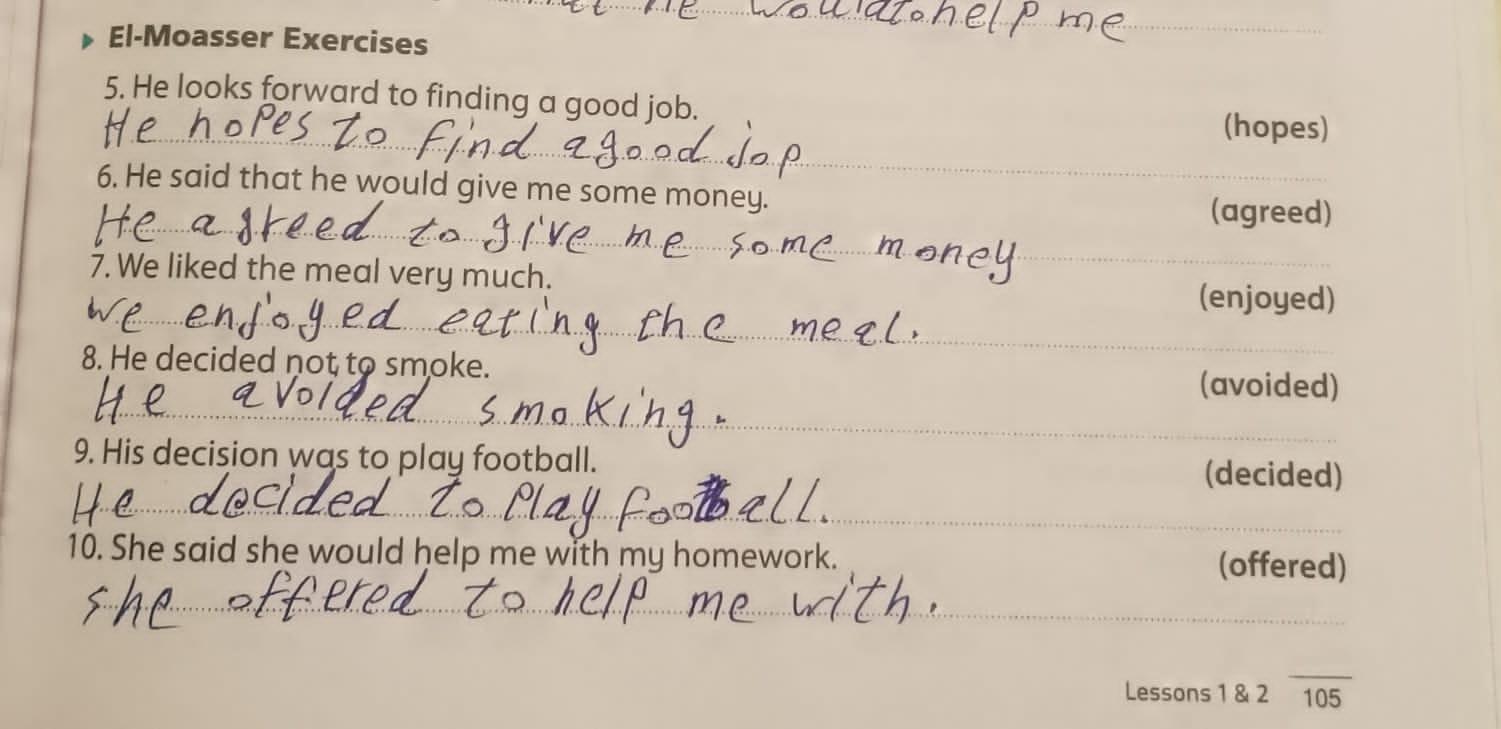 he would to help me
El-Moasser Exercises
5. He looks forward to finding a good job. (hopes)
He hopes to find a good jop
6. He said that he would give me some money. (agreed)
He agreed to give me some money
7. We liked the meal very much. (enjoyed)
we enjoyed eating the meal.
8. He decided not to smoke. (avoided)
He avoided smoking.
9. His decision was to play football. (decided)
He decided to play football.
10. She said she would help me with my homework. (offered)
she offered to help me with.
Lessons 1 & 2 105